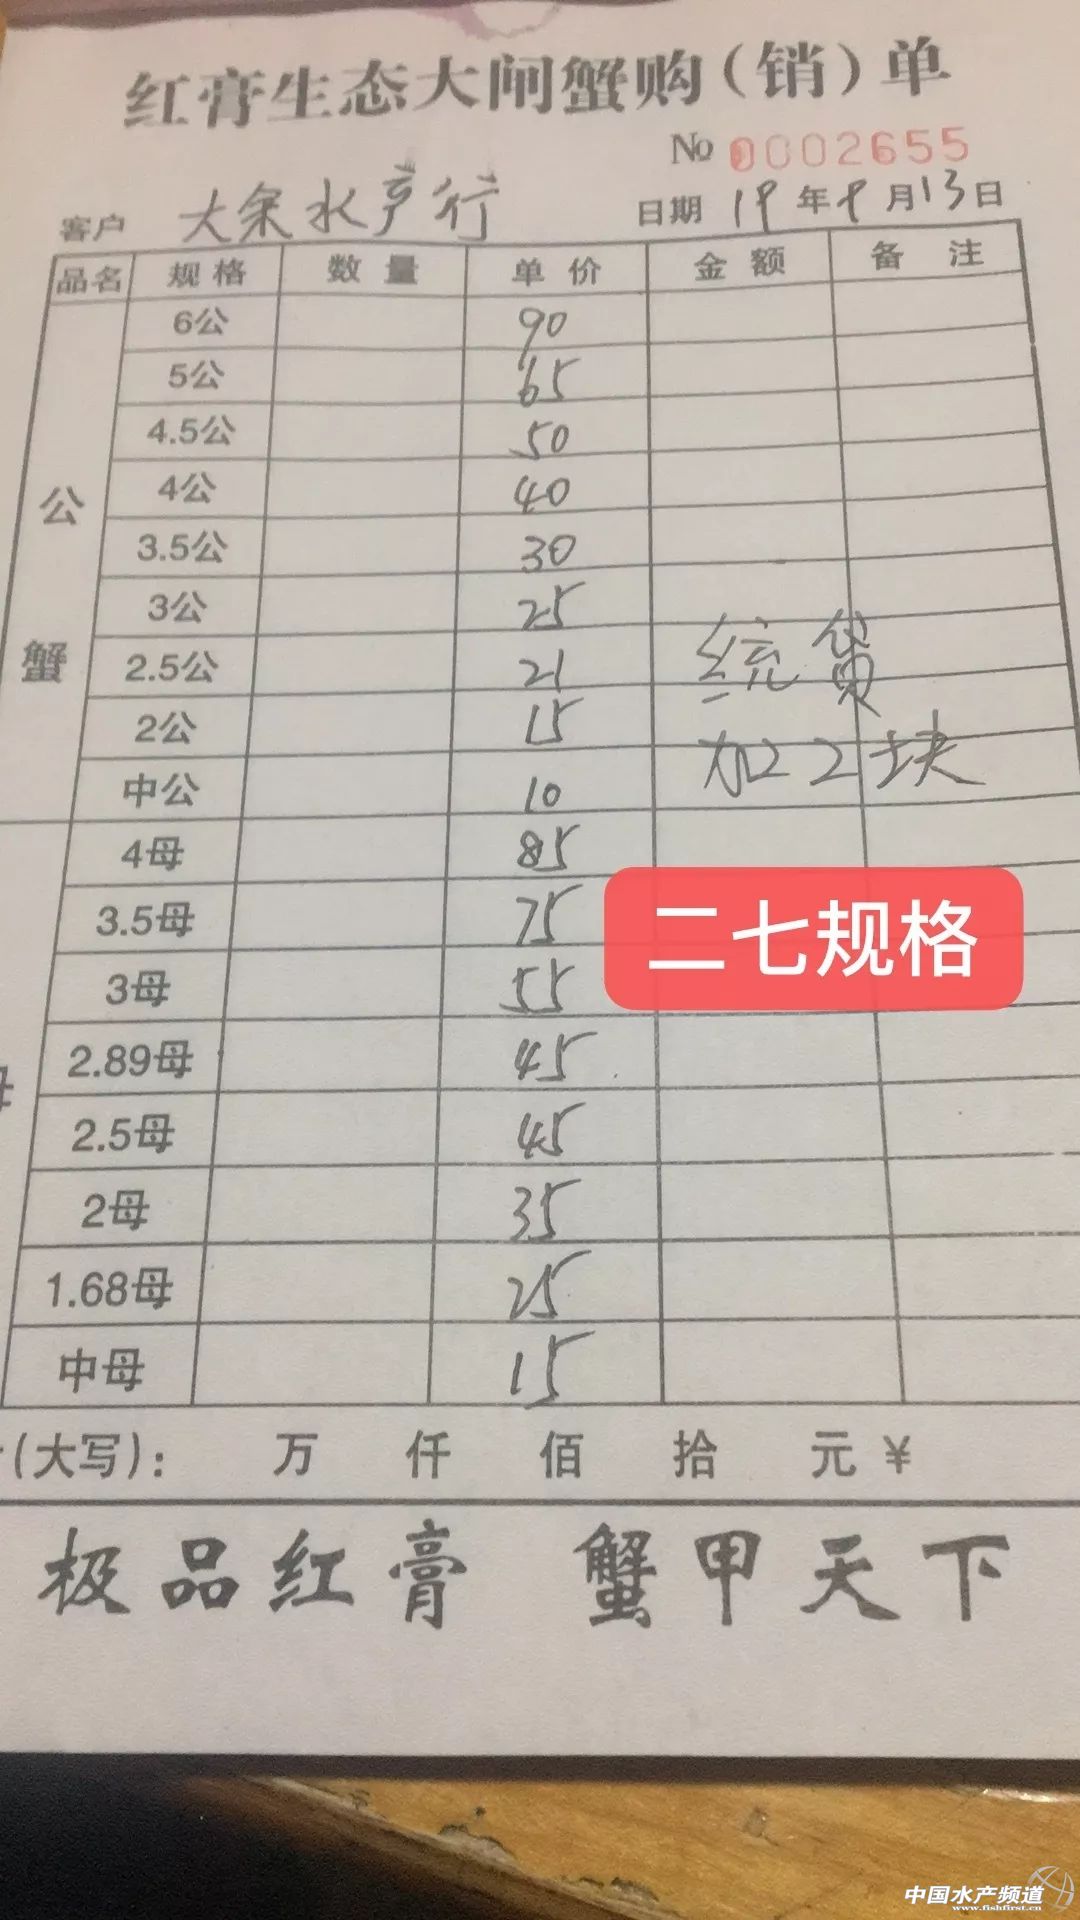 红膏生态大闸蟹购(销)单
No 00002655
客户 大余水产行 日期 19年9月13日
品名 规格 数量 单价 金额 备注
公蟹
6公 90
5公 65
4.5公 50
4公 40
3.5公 30
3公 25
2.5公 21
2公 15
中公 10
统货
加2块
4母 85
3.5母 75
二七规格
3母 55
2.89母 45
2.5母 45
2母 35
1.68母 25
中母 15
(大写): 万 仟 佰 拾 元 ¥
极品红膏 蟹甲天下
中国水产频道
www.fishfirst.cn